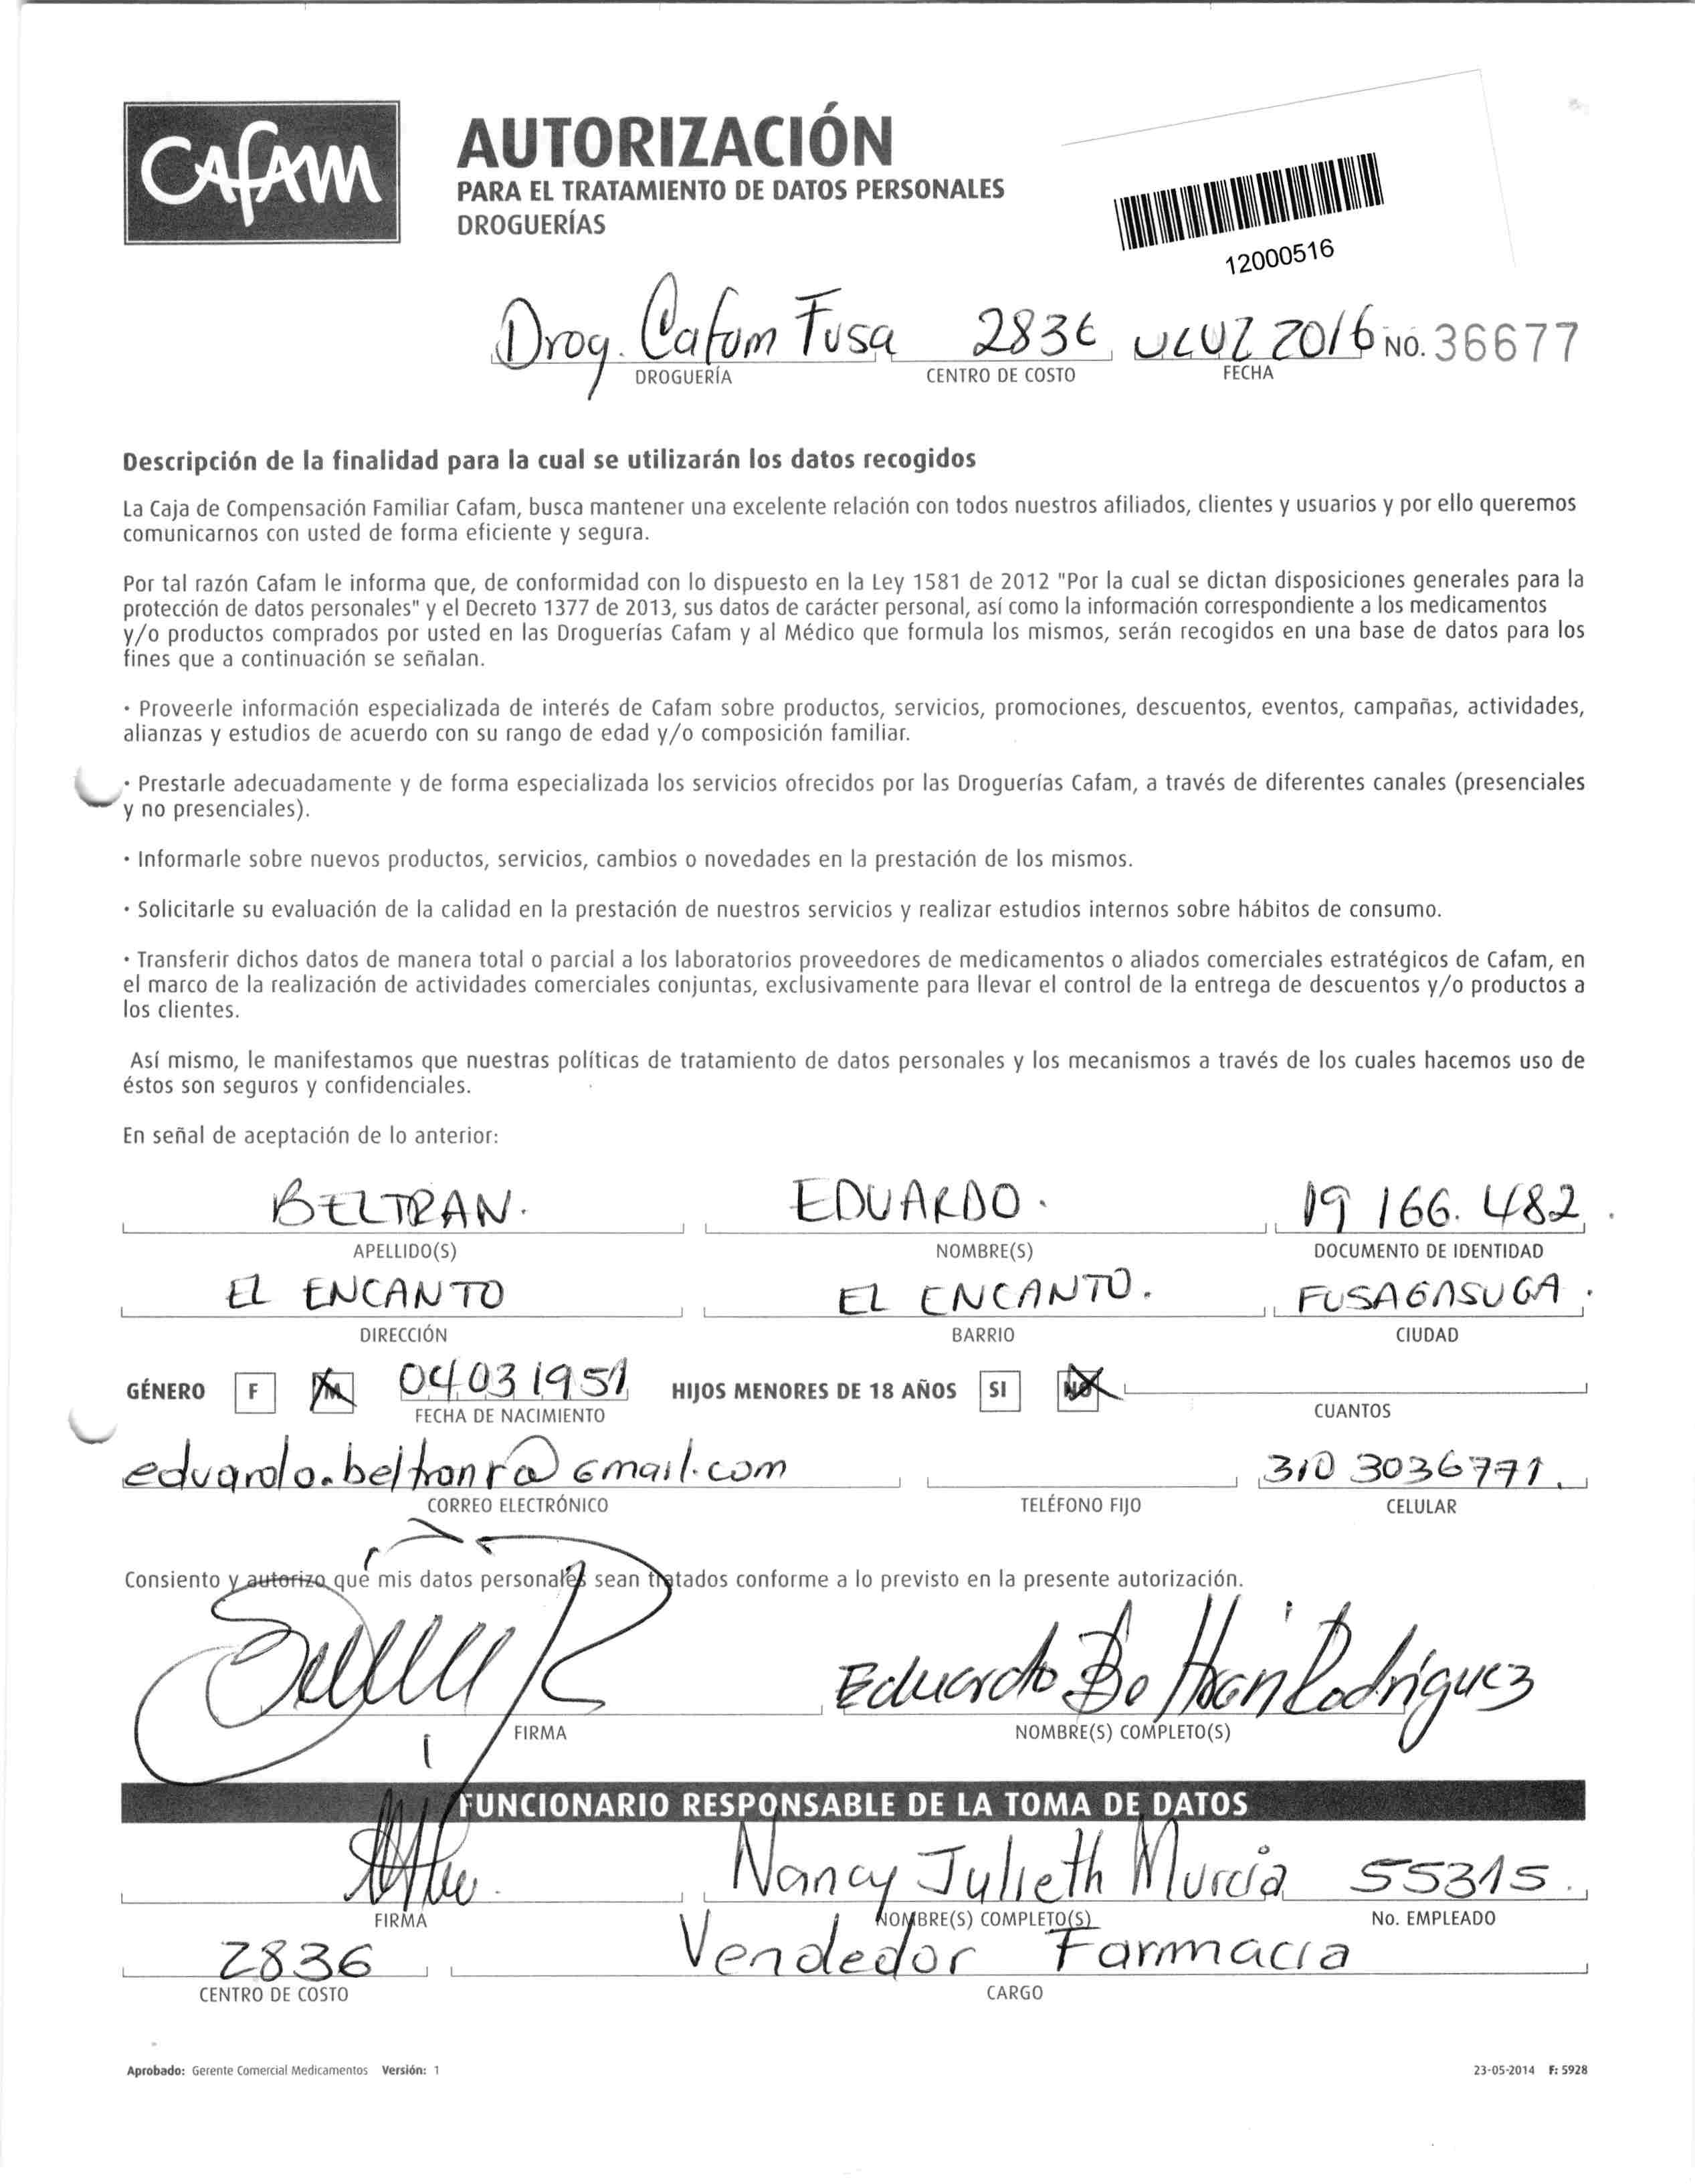 Cafam
AUTORIZACIÓN
PARA EL TRATAMIENTO DE DATOS PERSONALES
DROGUERÍAS
12000516
Drog. Cafam Fusa 2836 2016 No. 36677
DROGUERÍA CENTRO DE COSTO FECHA
Descripción de la finalidad para la cual se utilizarán los datos recogidos
La Caja de Compensación Familiar Cafam, busca mantener una excelente relación con todos nuestros afiliados, clientes y usuarios y por ello queremos
comunicarnos con usted de forma eficiente y segura.
Por tal razón Cafam le informa que, de conformidad con lo dispuesto en la Ley 1581 de 2012 "Por la cual se dictan disposiciones generales para la
protección de datos personales" y el Decreto 1377 de 2013, sus datos de carácter personal, así como la información correspondiente a los medicamentos
y/o productos comprados por usted en las Droguerías Cafam y al Médico que formula los mismos, serán recogidos en una base de datos para los
fines que a continuación se señalan.
· Proveerle información especializada de interés de Cafam sobre productos, servicios, promociones, descuentos, eventos, campañas, actividades,
alianzas y estudios de acuerdo con su rango de edad y/o composición familiar.
· Prestarle adecuadamente y de forma especializada los servicios ofrecidos por las Droguerías Cafam, a través de diferentes canales (presenciales
y no presenciales).
· Informarle sobre nuevos productos, servicios, cambios o novedades en la prestación de los mismos.
· Solicitarle su evaluación de la calidad en la prestación de nuestros servicios y realizar estudios internos sobre hábitos de consumo.
· Transferir dichos datos de manera total o parcial a los laboratorios proveedores de medicamentos o aliados comerciales estratégicos de Cafam, en
el marco de la realización de actividades comerciales conjuntas, exclusivamente para llevar el control de la entrega de descuentos y/o productos a
los clientes.
Así mismo, le manifestamos que nuestras políticas de tratamiento de datos personales y los mecanismos a través de los cuales hacemos uso de
éstos son seguros y confidenciales.
En señal de aceptación de lo anterior:
BELTRAN. EDUARDO. 19 166. 482.
APELLIDO(S) NOMBRE(S) DOCUMENTO DE IDENTIDAD
EL ENCANTO EL ENCANTO. FUSAGASUGA.
DIRECCIÓN BARRIO CIUDAD
GÉNERO F M 04 03 1951 HIJOS MENORES DE 18 AÑOS SI NO
FECHA DE NACIMIENTO CUANTOS
eduardo.beltranr@gmail.com 310 3036771.
CORREO ELECTRÓNICO TELÉFONO FIJO CELULAR
Consiento y autorizo que mis datos personales sean tratados conforme a lo previsto en la presente autorización.
Eduardo Beltran Rodriguez
FIRMA NOMBRE(S) COMPLETO(S)
FUNCIONARIO RESPONSABLE DE LA TOMA DE DATOS
Nancy Julieth Murcia 55315.
FIRMA NOMBRE(S) COMPLETO(S) No. EMPLEADO
2836 Vendedor Farmacia
CENTRO DE COSTO CARGO
Aprobado: Gerente Comercial Medicamentos Versión: 1 23-05-2014 F: 5928